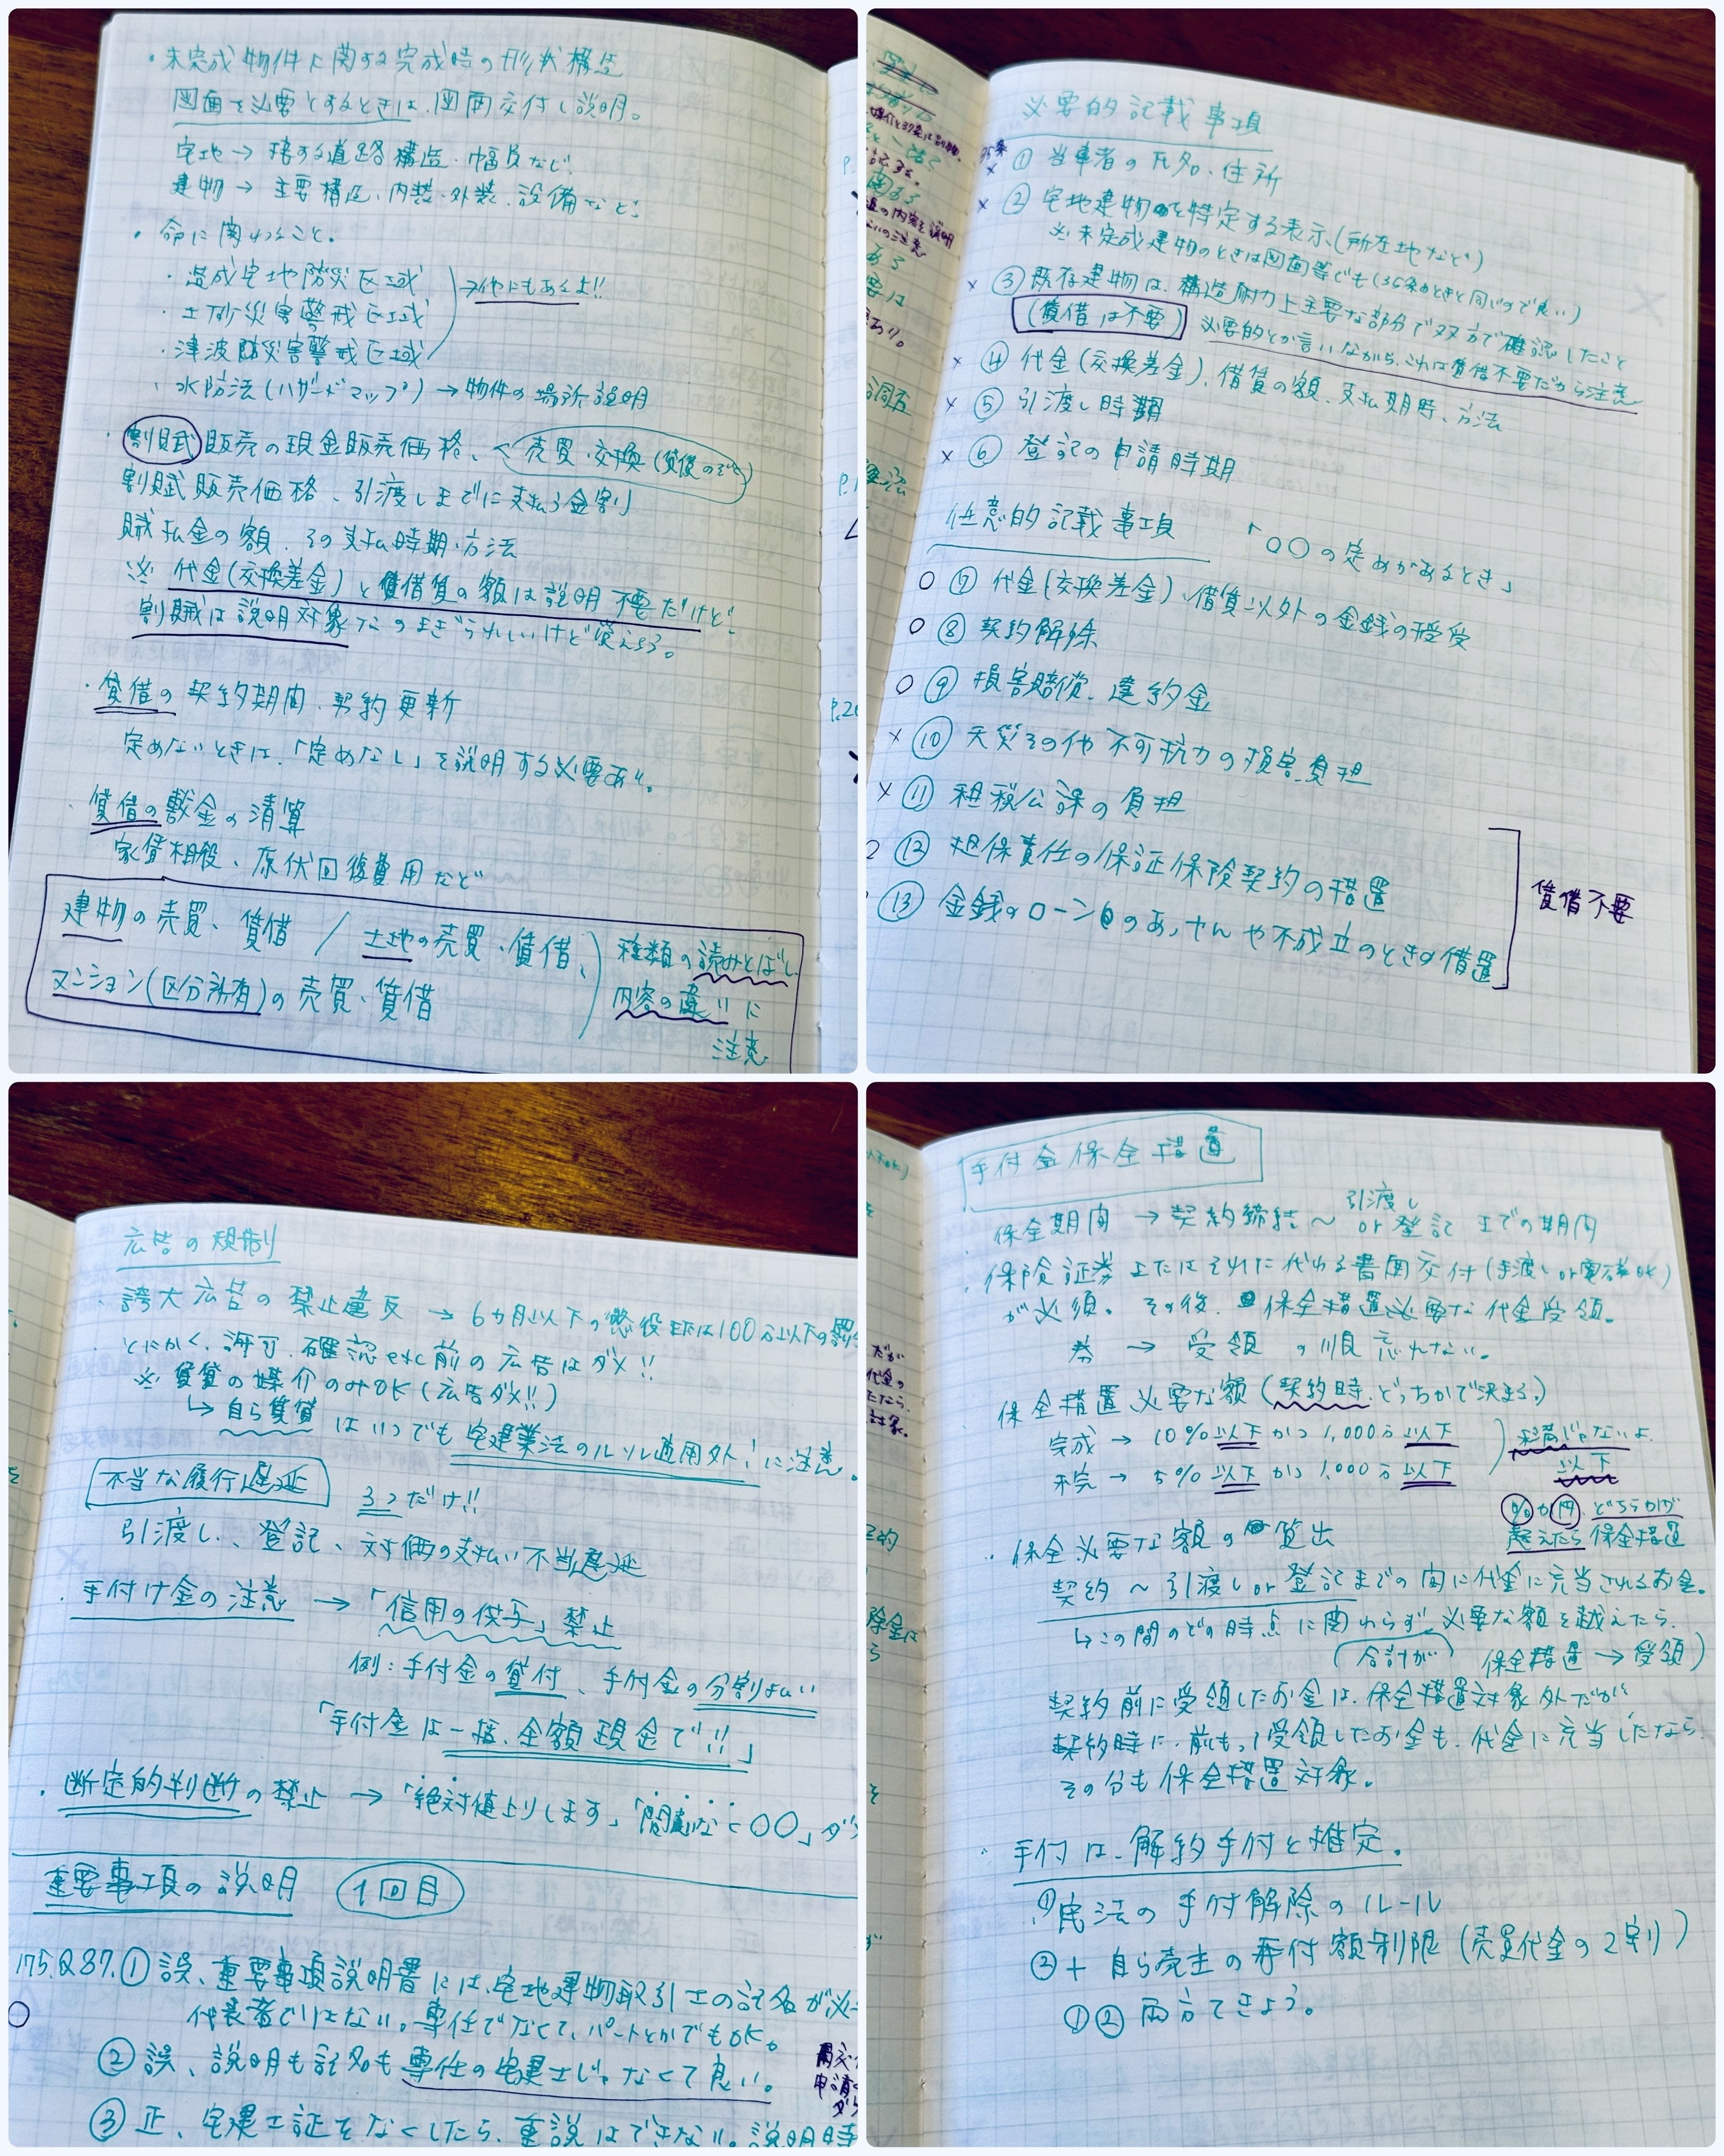 ・未完成物件に関する完成時の形状構造
図面を必要とするときは、図面交付し説明。
宅地→接する道路構造・幅員など
建物→主要構造、内装・外装、設備など
・命に関わること。
・造成宅地防災区域
・土砂災害警戒区域
・津波防災害警戒区域
→他にもあるよ!!
・水防法(ハザードマップ)→物件の場所説明
・割賦販売の現金販売価格、<売買・交換(貸借のぞく)
割賦販売価格、引渡しまでに支払う金割
賦払金の額、その支払時期・方法
※代金(交換差金)と賃借賃の額は説明不要だけど
割賦は説明対象なのまぎらわしいけど覚えよう。
・貸借の契約期間、契約更新
定めないときは、「定めなし」を説明する必要あり。
・貸借の敷金の清算
家賃相殺、原状回復費用など
建物の売買、貸借/土地の売買・賃借、
マンション(区分所有)の売買・賃借
種類の読みとばし
内容の違いに
注意
必要的記載事項
35条
× ① 当事者の氏名、住所
× ② 宅地建物を特定する表示、(所在地など)
※未完成建物のときは図面等でも(35条のときと同じので良い)
× ③ 既存建物は、構造耐力上主要な部分で双方で確認したこと
(賃借は不要) 必要的とか言いながら、これは賃借不要だから注意
× ④ 代金(交換差金)、借賃の額、支払期時、方法
× ⑤ 引渡し時期
× ⑥ 登記の申請時期
任意的記載事項 「○○の定めがあるとき」
○ ⑦ 代金(交換差金)、借賃以外の金銭の授受
○ ⑧ 契約解除
○ ⑨ 損害賠償、違約金
× ⑩ 天災その他不可抗力の損害負担
× ⑪ 租税公課の負担
⑫ 担保責任の保証保険契約の措置
⑬ 金銭のローンのあっせんや不成立のときの措置
賃借不要
広告の規制
・誇大広告の禁止違反→6カ月以下の懲役または100万以下の罰
・とにかく、許可、確認etc前の広告はダメ!!
※賃貸の媒介のみOK(広告ダメ!!)
↳自ら賃貸はいつでも宅建業法のルール適用外!に注意。
不当な履行遅延 3つだけ!!
引渡し、登記、対価の支払い不当遅延
・手付け金の注意→「信用の供与」禁止
例:手付金の貸付、手付金の分割払い
「手付金は一括、全額現金で!!」
・断定的判断の禁止→「絶対値上りします」「間違いなく○○」ダ
重要事項の説明 1回目
175.Q37.① 誤、重要事項説明書には、宅地建物取引士の記名が必
代表者ではない。専任でなくて、パートとかでもOK。
② 誤、説明も記名も専任の宅建士じゃなくて良い。
③ 正、宅建士証をなくしたら、重説はできない。説明時
手付金保全措置
・保全期間→契約締結～引渡しor登記までの期間
・保険証券またはそれに代わる書面交付(手渡しor電磁OK)
が必須。その後、保全措置必要な代金受領。
券→受領の順忘れない。
保全措置必要な額(契約時、どっちかで決まる。)
完成→10%以下かつ1,000万以下
未完→5%以下かつ1,000万以下
未満じゃないよ
以下
%か円、どちらかが
超えたら保全措置
・保全必要な額の算出
契約～引渡しor登記までの間に代金に充当されるお金。
↳この間のどの時点に関わらず、必要な額を越えたら、
(合計が 保全措置→受領)
契約前に受領したお金は、保全措置対象外だが
契約時に、前もって受領したお金も、代金に充当したなら
その分も保全措置対象。
・手付は、解約手付と推定。
①民法の手付解除のルール
②+自ら売主の手付額制限(売買代金の2割)
①②両方てきよう。